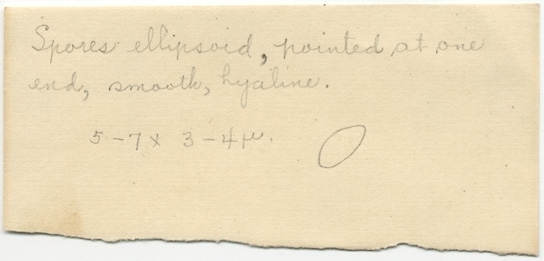 Spores ellipsoid, pointed at one
end, smooth, hyaline.
5-7 x 3-4 µ.